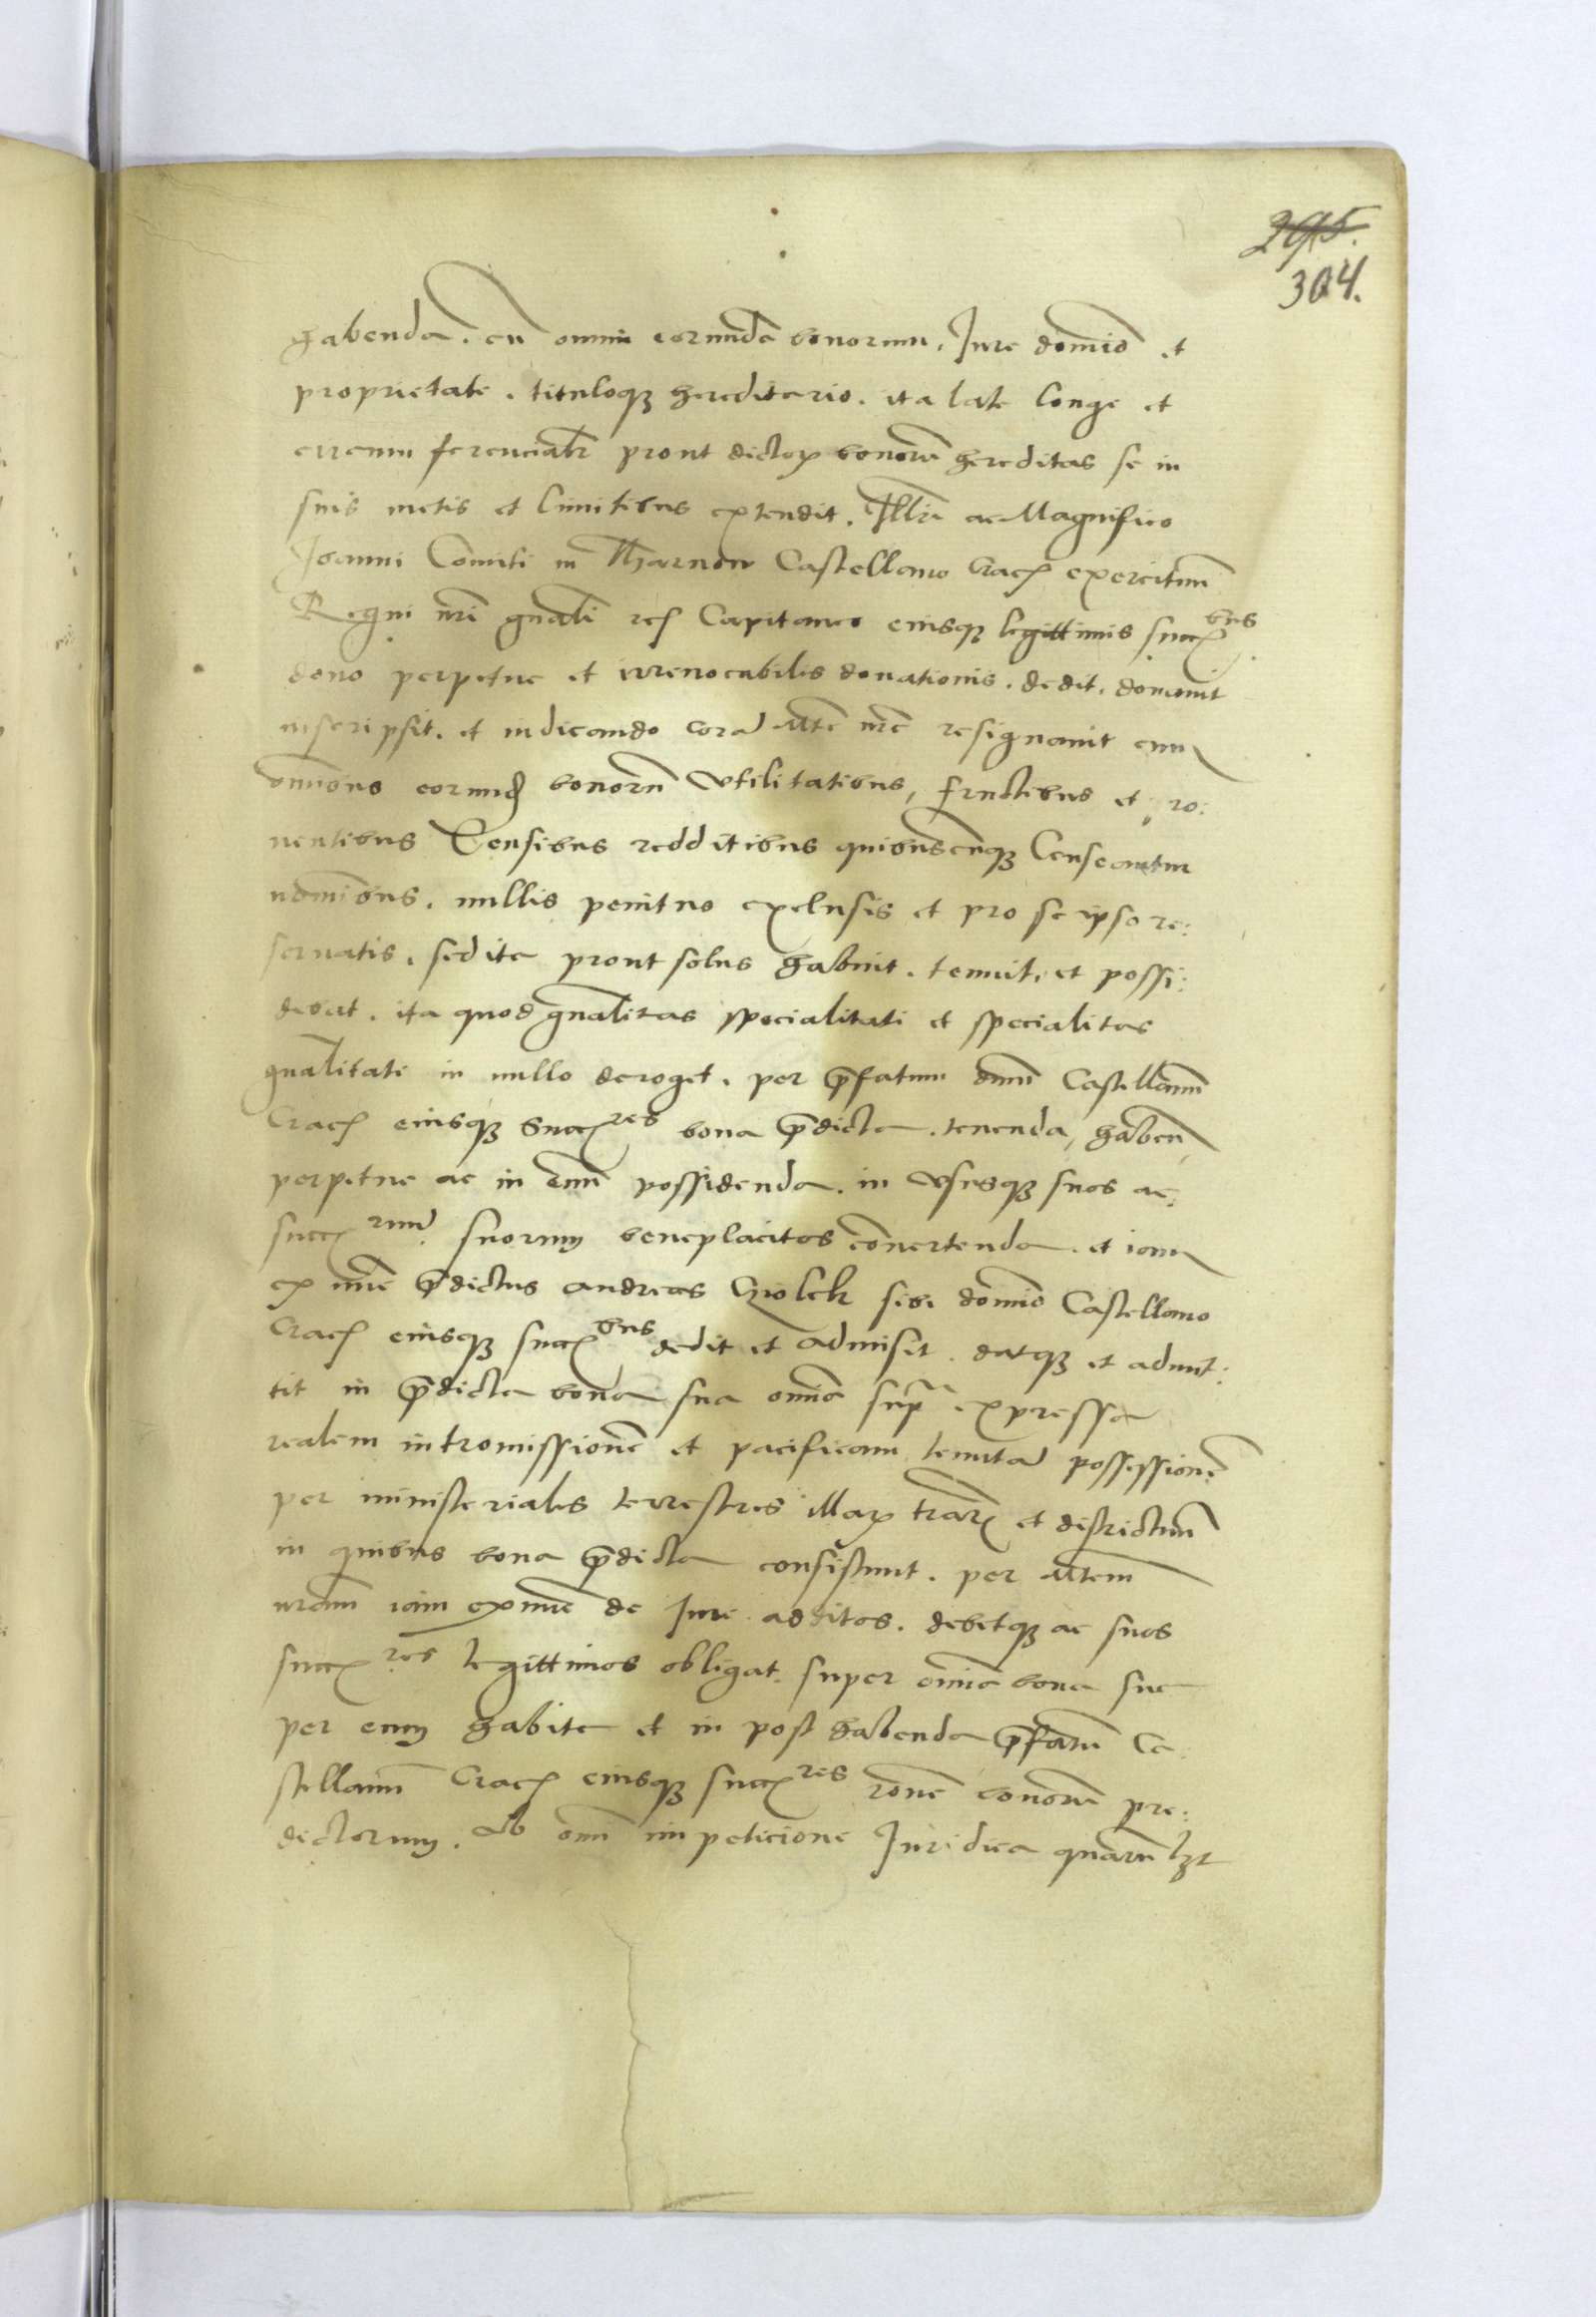 295.
304.
habenda. cũ omni eorundẽ bonorum. Jure dominio et
proprietate. tituloq3 hereditario. ita late longe et
circum ferencialr prout dictoꝝ bonorũ hereditas se in
suis metis et limitibus extendit. Illri ac Magnifico
Joanni Comiti in Tharnow Castellano Crac exercituũ
Regni nri gnali Capitaneo eiusq3 legittimis succ bus
dono perpetue et irreuocabilis donationis. dedit. donauit
inscripsit. et indicando corã Mte nrã resignauit cum
omnibus eorund bonorũ vtilitatibus, fructibus et ro:
uentibus Censibus redditibus quibuscunq3 Censeantur
nominibus. nullis penitus exclusis et pro se ipso re:
seruatis. sed ita prout solus habuit. tenuit. et possi:
debat. ita quod gnalitas specialitati et specialitas
gnalitati in nullo deroget. per p̃fatum dnum Castellanũ
Crac eiusq3 Succ res bona p̃dicta. tenenda, haben
perpetue ac in euũ possidenda. in vsusq3 suos ac
succ rum suorum beneplacitos conuertenda. et iam
ex nũc p̃dictus andreas Cziolek sibi domino Castellano
Crac eiusq3 succ bus dedit et admisit. datq3 et admit:
tit in p̃dicta bona sua omnia supra expressa
realem intromissionẽ et pacificam tenutã possessionẽ
per ministeriales terrestres illaꝝ trarũ et districtuũ
in quibus bona p̃dicta consistunt. per Mtem
nram iam exnũc de Jure additos. debetq3 ac suos
succ res legittimos obligat. super omnia bona sua
per eum habita et in post habenda p̃fatũ Ca
stellanũ Crac eiusq3 succ res rõne bonorũ pre:
dictorum. Ab omni impeticione Juridica quarũ lzt